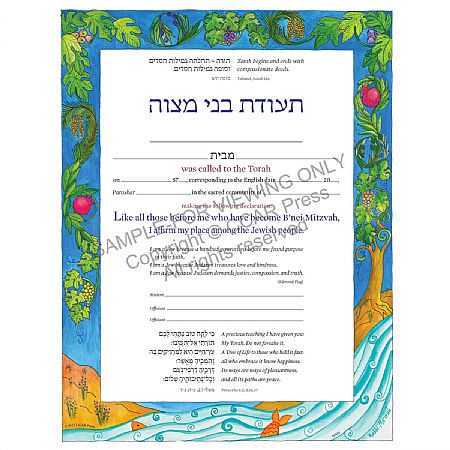 תורה – תחלתה גמילות חסדים
וסופה גמילות חסדים.
Torah begins and ends with
compassionate deeds.
Talmud, Sotah 14a
תעודת בני מצוה
מבית
was called to the Torah
on 57 , corresponding to the English date 20 ,
Parashat , in the sacred community of
making the following declaration:
Like all those before me who have become B'nei Mitzvah,
I affirm my place among the Jewish people.
I am a Jew because a hundred generations before me found purpose
in their faith.
I am a Jew because Judaism treasures love and kindness.
I am a Jew because Judaism demands justice, compassion, and truth.
(Edmond Fleg)
Student
Officiant
Officiant
כִּי לֶקַח טוֹב נָתַתִּי לָכֶם
תּוֹרָתִי אַל־תַּעֲזֹבוּ:
עֵץ־חַיִּים הִיא לַמַּחֲזִיקִים בָּהּ
וְתֹמְכֶיהָ מְאֻשָּׁר:
דְּרָכֶיהָ דַרְכֵי־נֹעַם
וְכָל־נְתִיבוֹתֶיהָ שָׁלוֹם:
A precious teaching I have given you:
My Torah. Do not forsake it.
A Tree of Life to those who hold it fast:
all who embrace it know happiness.
Its ways are ways of pleasantness,
and all its paths are peace.
SAMPLE FOR VIEWING ONLY
Copyright © CCAR Press
All rights reserved